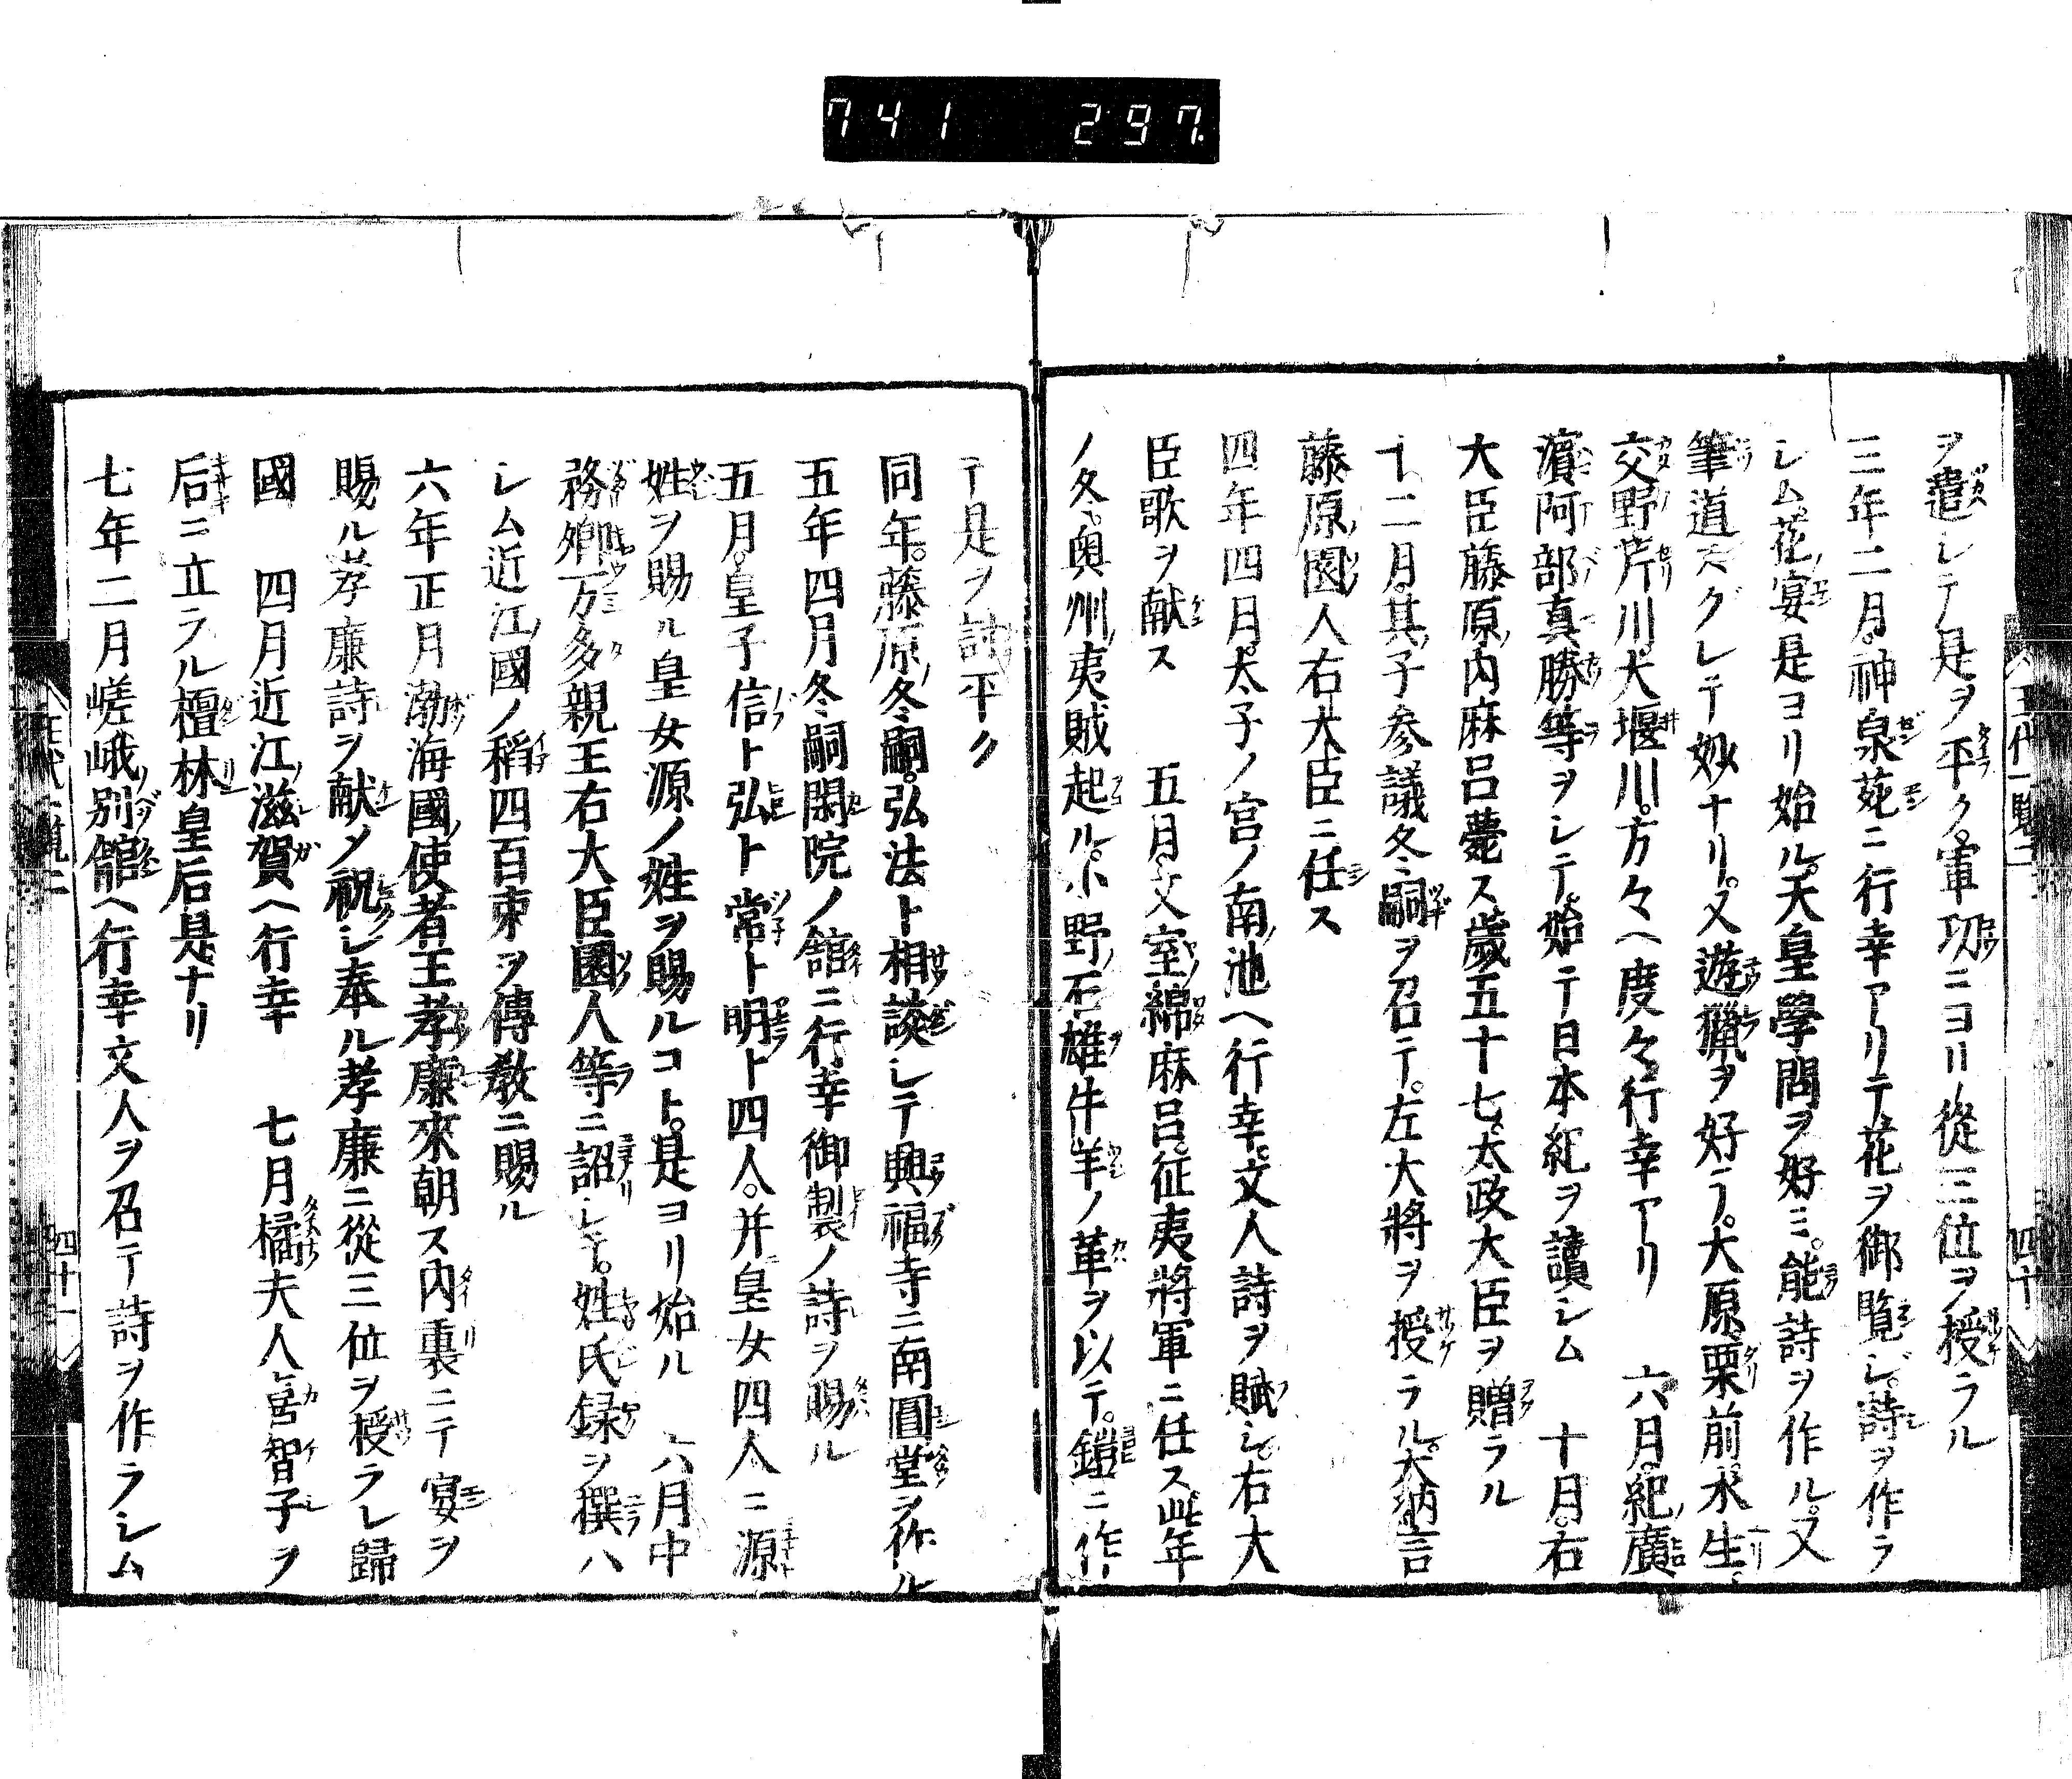 741 297
ヲ遣シテ是ヲ平ク。軍功ニヨリ從三位ヲ授ラル
三年二月。神泉苑ニ行幸アリテ花ヲ御覧シ。詩ヲ作ラ
シム。花宴是ヨリ始ル。天皇學問ヲ好ミ。能詩ヲ作ル。又
筆道スグレテ妙ナリ。又遊獵ヲ好ラ。大原栗前。水生。
交野。芹川。大堰川。方々ヘ度々行幸アリ 六月。紀廣
濱阿部真勝等ヲシテ。始テ日本紀ヲ讀シム 十月。右
大臣藤原内麻呂薨ス。歲五十七。太政大臣ヲ贈ラル
十二月。其子参議冬嗣ヲ召テ。左大將ヲ授ラル。大納言
藤原園人右大臣ニ任ス
四年四月。太子ノ宮ノ南池ヘ行幸。文人詩ヲ賦シ。右大
臣歌ヲ献ス 五月。文室綿麻呂。征夷將軍ニ任ス此年
ノ冬。奥州ノ夷賊起ル。小野石雄牛羊ノ革ヲ以テ。鎧ニ作
テ是ヲ討平ク
同年。藤原冬嗣。弘法ト相談シテ興福寺ニ南圓堂ヲ作ル
五年四月冬嗣閑院ノ舘ニ行幸御製ノ詩ヲ賜ル
五月。皇子信ト弘ト常ト明ト四人。并皇女四人ニ源
姓ヲ賜ル皇女源ノ姓ヲ賜ルコト。是ヨリ始ル 六月中
務卿万多親王右大臣園人等ニ詔シテ。姓氏録ヲ撰ハ
シム近江國ノ稻四百束ヲ傳教ニ賜ル
六年正月渤海國使者王孝廉來朝ス内裏ニテ宴ヲ
賜ル孝廉詩ヲ献メ祝シ奉ル孝廉ニ從三位ヲ授ラレ歸
國 四月近江滋賀ヘ行幸 七月橘夫人嘉智子ヲ
后ニ立ラル檀林皇后是ナリ
七年二月嵯峨別舘ヘ行幸文人ヲ召テ詩ヲ作ラシム
王代一覧二
四十
四十一